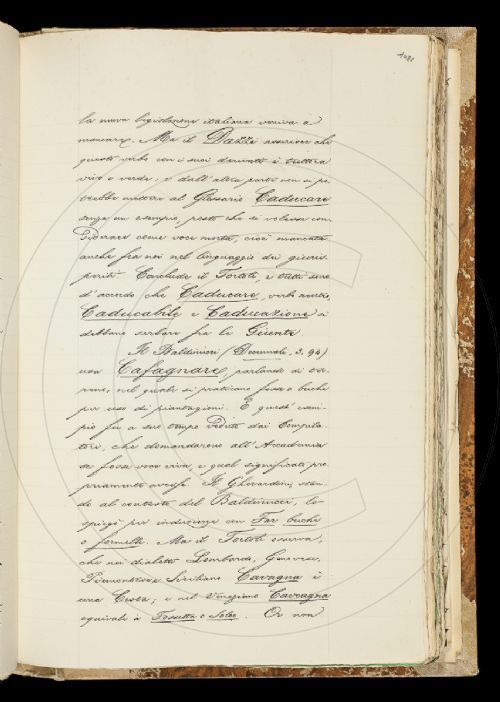 1081
la nuova legislazione italiana veniva a
mancare. Ma il Dazzi asserisce che
questo verbo con i suoi derivati è tuttora
vivo e verde, e dall'altra parte non si po
trebbe mettere al Glossario Caducare
senza un esempio, posto che si volesse con
siderare come voce morta, cioè mancata
anche fra noi nel linguaggio dei giuris
periti. Conclude il Tortoli, e tutti sono
d'accordo che Caducare, verbo neutro,
Caducabile e Caducazione si
debbano serbare fra le Giunte.
Il Baldinucci (Decennali, 3. 94)
usa Cafagnare parlando di ter
reno, nel quale si praticano fosse o buche
per uso di piantagioni. E quest'esem
pio fu a suo tempo veduto dai Compila
tori, che domandarono all'Accademia
se fosse voce viva, e qual significato pro
priamente avesse. Il Gherardini, stan
do al contesto del Baldinucci, lo
spiegò per induzione con Far buche
o formelle. Ma il Tortoli osserva,
che nei dialetti Lombardo, Genovese,
Piemontese e Siciliano Cavagna è
una Cesta; e nel Veneziano Cavagna
equivale a Fossetta o Solco. Or non